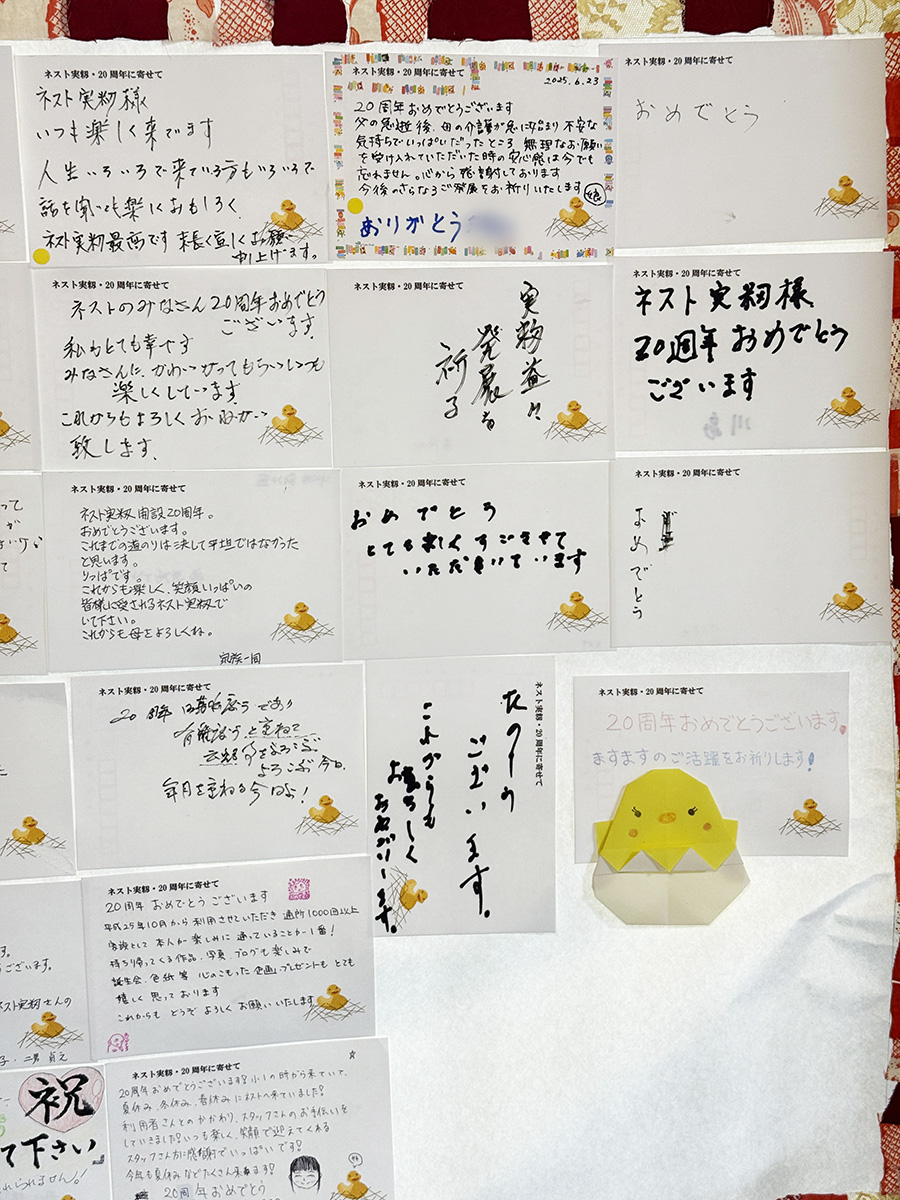 ネスト実籾・20周年に寄せて
ネスト実籾様
いつも楽しく来てます
人生いろいろで来ている方もいろいろで
話を聞いても楽しくおもしろく、
ネスト実籾最高です 末長く宜しくお願い
申し上げます。
ネスト実籾・20周年に寄せて
2025.6.23
20周年おめでとうございます
父の急逝後、母の介護が急に始まり 不安な
気持ちでいっぱいだったところ 無理なお願い
を受け入れていただいた時の安心感は今でも
忘れません。心から感謝しております
今後のさらなるご発展をお祈りいたします 娘
ありがとう
ネスト実籾・20周年に寄せて
おめでとう
ネスト実籾・20周年に寄せて
ネストのみなさん20周年おめでとう
ございます。
私もとても幸です
みなさんに、かわいがってもらっていつも
楽しくしています。
これからもよろしくおねがい
致します。
ネスト実籾・20周年に寄せて
実籾益々
発展を
祈る
ネスト実籾・20周年に寄せて
ネスト実籾様
20週年おめでとう
ございます
ネスト実籾・20周年に寄せて
ネスト実籾開設20周年。
おめでとうございます。
これまでの道のりは決して平坦ではなかった
と思います。
りっぱです。
これからも楽しく、笑顔いっぱいの
皆様に愛されるネスト実籾で
いて下さい。
これからも母をよろしくね。
家族一同
ネスト実籾・20周年に寄せて
おめでとう
とても楽しくすごさせて
いただいています
ネスト実籾・20周年に寄せて
おめでとう
ネスト実籾・20周年に寄せて
20周年
よろこぶ今日、
年月を重ねる今日よ!
ネスト実籾・20周年に寄せて
たのしう
ございます。
これからも
よろしく
おねがいします。
ネスト実籾・20周年に寄せて
20周年おめでとうございます
ますますのご活躍をお祈りします!
ネスト実籾・20周年に寄せて
20周年 おめでとう ございます
平成25年10月から 利用させていただき 通所1000回以上
家族として 本人が楽しみに 通っていることが一番!
持ち帰ってくる作品、写真、ブログも楽しみで
誕生会、色紙等 心のこもった企画、プレゼントも とても
嬉しく 思っております
これからも どうぞ よろしく お願いいたします
ございます。
ネスト実籾さんの
祝
て下さい
られません!!
ネスト実籾・20周年に寄せて
20周年おめでとうございます!小1の時から来ていて、
夏休み、冬休み、春休みにネストへ来ていました!
利用者さんとのかかわり、スタッフさんのお手伝いを
していきました!いつも楽しく、笑顔で迎えてくれる
スタッフさん方に感謝でいっぱいです!
今年も夏休みなどたくさん来ます!
20周年おめでとう